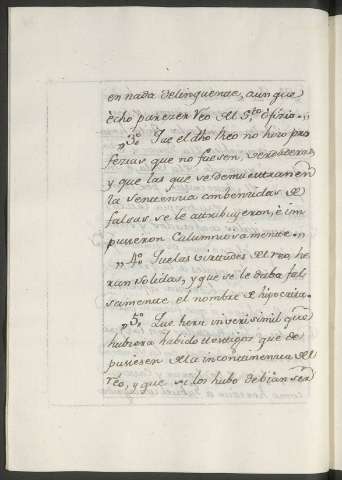 en nada delinquente, aunque
echo parecer reo del S.to oficio.
„ 3.º Que el dho Reo no hizo pro
fezias, que no fuesen verdaderas,
y que las que se demuestran en
la sentencia combencidas de
falsas se le atribuyeron, é im
pusieron calumniosamente.
„ 4.º Que las virtudes del reo he
ran solidas, y que se le daba fal
samente el nombre de hipocrita.
„ 5.º Que hera inverisimil que
hubiera habido testigos que de
pusiesen de la incontinencia del
reo, y que si los hubo debian ser